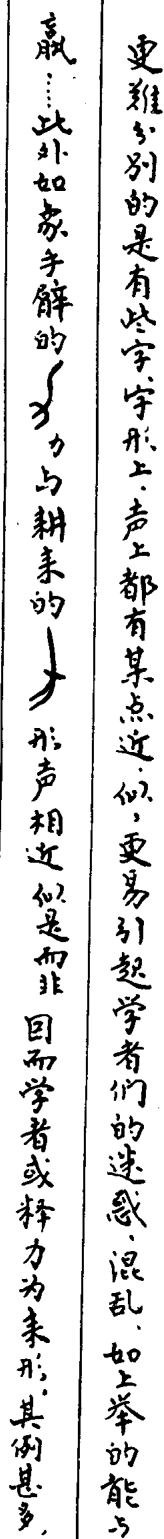 更难分别的是有些字、字形上、声上都有某点近似,更易引起学者们的迷惑、混乱、如上举的能与
羸……此外如象手臂的力与耕耒的形声相近似是而非因而学者或释力为耒形,其例甚多、